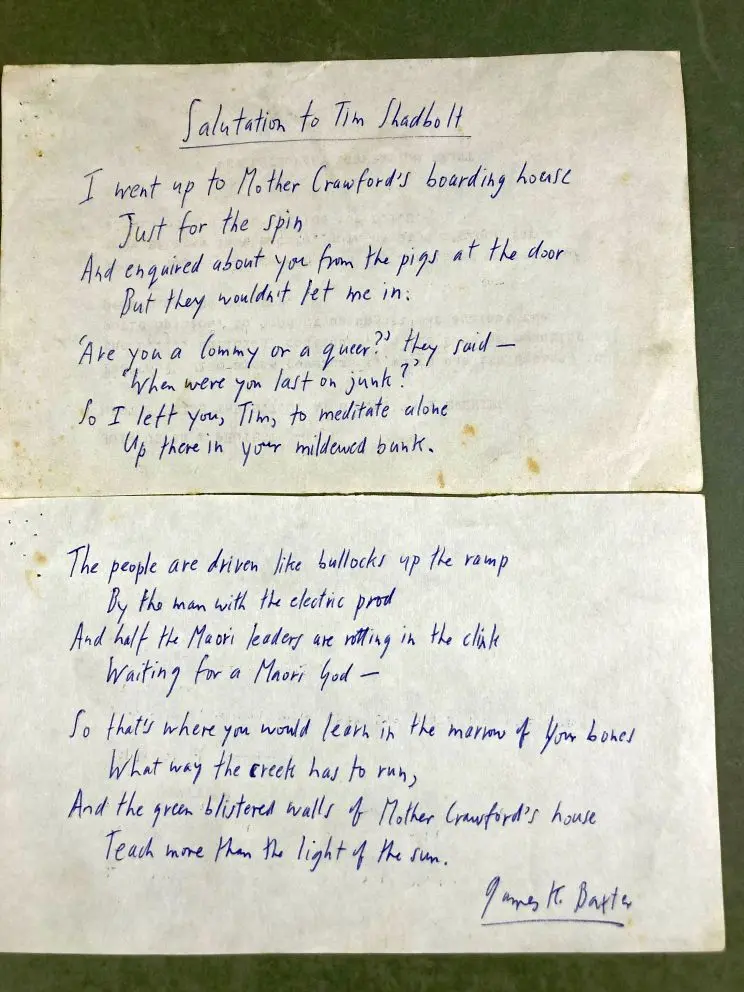 Salutation to Tim Shadbolt
I went up to Mother Crawford's boarding house
Just for the spin
And enquired about you from the pigs at the door
But they wouldn't let me in.
'Are you a Commy or a queer?' they said —
'When were you last on junk?'
So I left you, Tim, to meditate alone
Up there in your mildewed bunk.
The people are driven like bullocks up the ramp
By the man with the electric prod
And half the Maori leaders are rotting in the clink
Waiting for a Maori God —
So that's where you would learn in the marrow of your bones
What way the creek has to run,
And the green blistered walls of Mother Crawford's house
Teach more than the light of the sun.
James K. Baxter